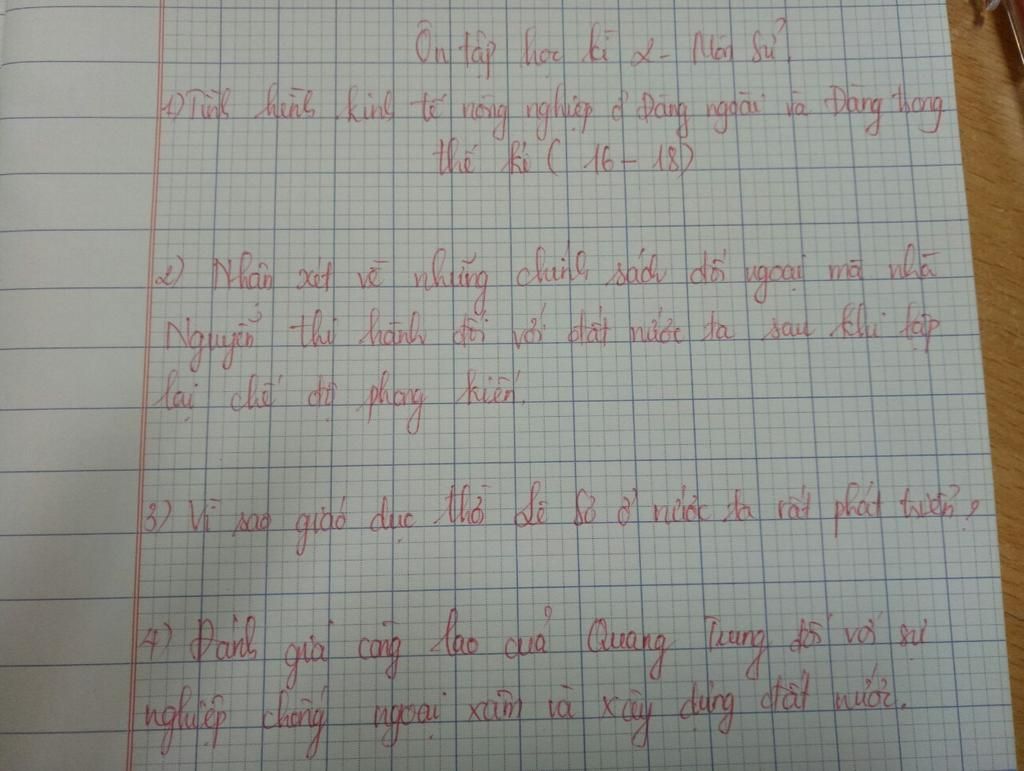 Ôn tập học kì 2 - Môn Sử
1) Tình hình kinh tế nông nghiệp ở Đàng ngoài và Đàng trong
thế kỉ ( 16 - 18)
2) Nhận xét về những chính sách đối ngoại mà nhà
Nguyễn thi hành đối với đất nước ta sau khi lập
lại chế độ phong kiến.
3) Vì sao giáo dục thời Lê Sơ ở nước ta rất phát triển?
4) Đánh giá công lao của Quang Trung đối với sự
nghiệp chống ngoại xâm và xây dựng đất nước.